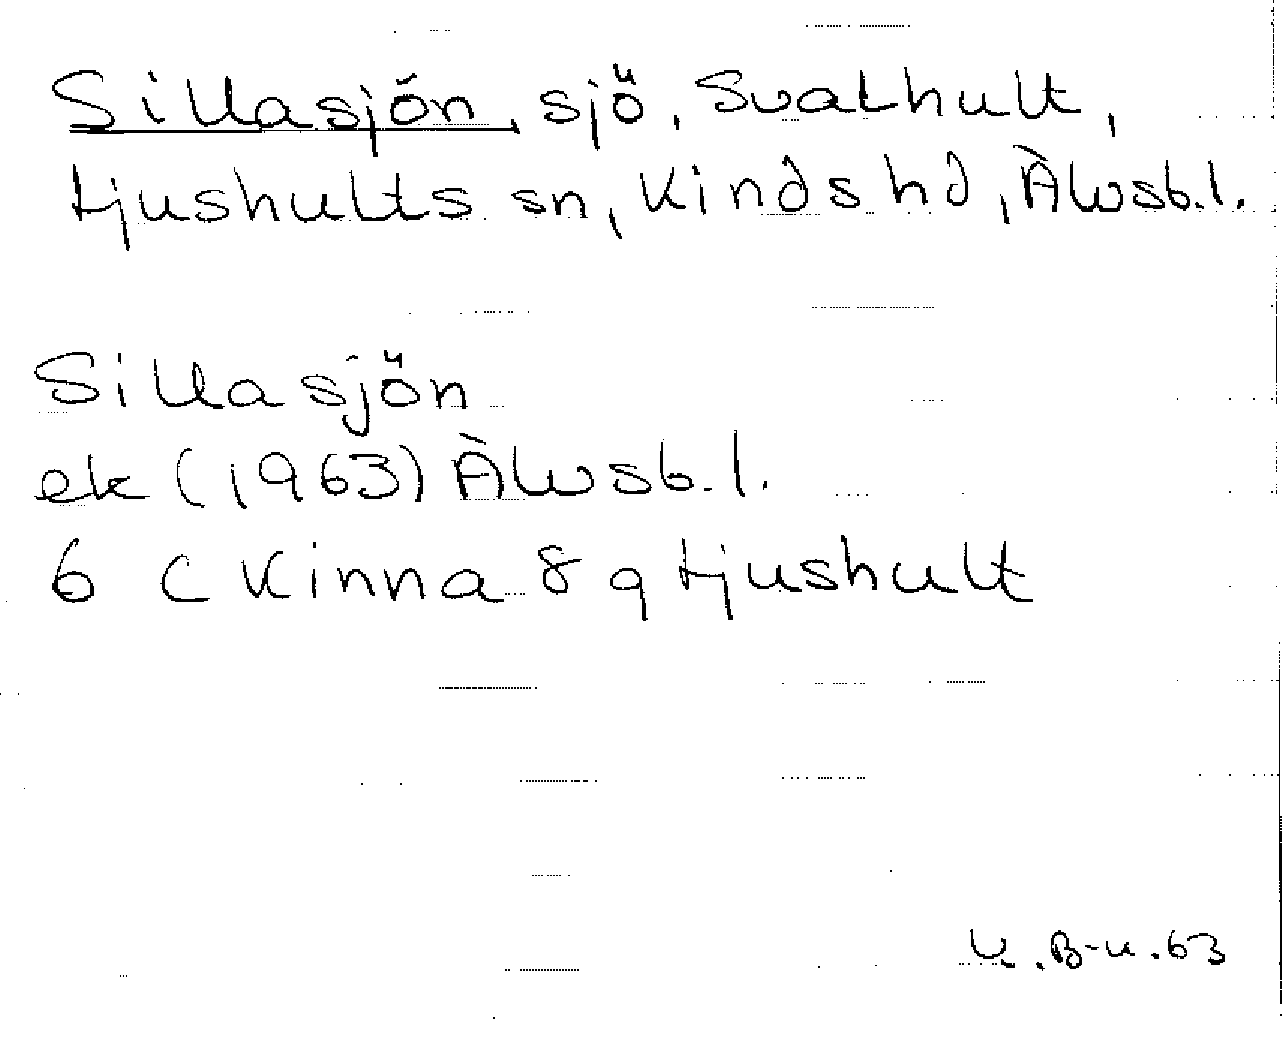 Sillasjön, sjö, Svathult,
Ljushults sn, Kinds hd, Älvsb.l.
Sillasjön
ek (1963) Älvsb.l.
6 C Kinna 8 g Ljushult
K.B-n.63